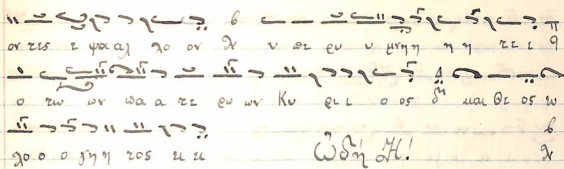 οντες ε ψα αλ λο ον λ υ πε ρυ υ μνη η η η τε ε ι q
ο τω ων πα α τε ρω ων Κυ ρι ι ο ος δη και Θε ος ω
λο ο ο γη η τος ει ει Ὠδή Η! λ